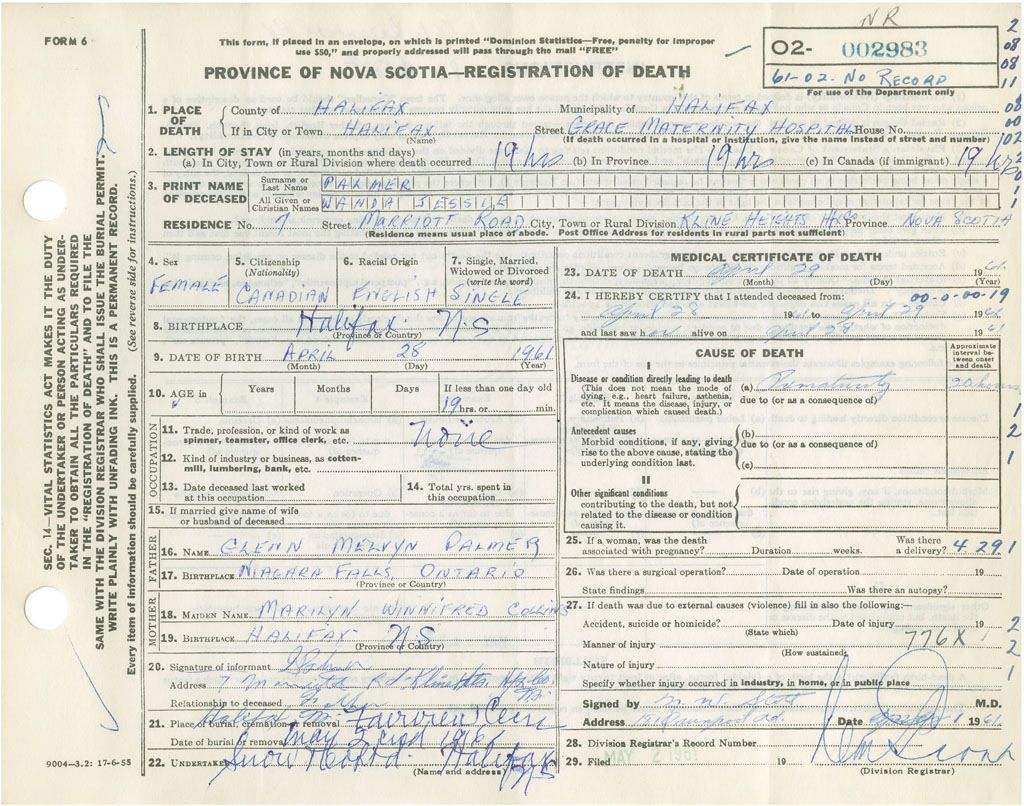 NR
FORM 6
This form, if placed in an envelope, on which is printed "Dominion Statistics—Free, penalty for improper
use $50," and properly addressed will pass through the mail "FREE"
02- 002983
61-02. No RECORD
For use of the Department only
PROVINCE OF NOVA SCOTIA—REGISTRATION OF DEATH
2
08
08
11
08
00
102
1. PLACE OF DEATH County of HALIFAX Municipality of HALIFAX
If in City or Town HALIFAX Street GRACE MATERNITY HOSPITAL House No.
(Name) (If death occurred in a hospital or institution, give the name instead of street and number)
2. LENGTH OF STAY (in years, months and days)
(a) In City, Town or Rural Division where death occurred 19 hrs (b) In Province 19 hrs (c) In Canada (if immigrant) 19 hrs
3. PRINT NAME OF DECEASED Surname or Last Name PALMER
All Given or Christian Names WANDA JESSIE
RESIDENCE No. 7 Street MARRIOTT ROAD City, Town or Rural Division KLINE HEIGHTS HFX Co Province NOVA SCOTIA
(Residence means usual place of abode. Post Office Address for residents in rural parts not sufficient)
4. Sex FEMALE
5. Citizenship (Nationality) CANADIAN
6. Racial Origin ENGLISH
7. Single, Married, Widowed or Divorced (write the word) SINGLE
8. BIRTHPLACE Halifax N.S
(Province or Country)
9. DATE OF BIRTH APRIL 28 1961
(Month) (Day) (Year)
10. AGE in Years Months Days If less than one day old
19 hrs. or min.
OCCUPATION
11. Trade, profession, or kind of work as
spinner, teamster, office clerk, etc. None
12. Kind of industry or business, as cotton-
mill, lumbering, bank, etc.
13. Date deceased last worked
at this occupation
14. Total yrs. spent in
this occupation
15. If married give name of wife
or husband of deceased
FATHER
16. NAME GLENN MELVYN PALMER
17. BIRTHPLACE NIAGARA FALLS, ONTARIO
(Province or Country)
MOTHER
18. MAIDEN NAME MARILYN WINNIFRED COLLINS
19. BIRTHPLACE HALIFAX N.S
(Province or Country)
20. Signature of informant
Address 7 Marriott Rd
Relationship to deceased Father
21. Place of burial, cremation or removal Fairview Cem
Date of burial or removal May 2nd 1961
22. UNDERTAKER Snow Halifax NS
(Name and address)
9004—3.2: 17-6-55
MEDICAL CERTIFICATE OF DEATH
23. DATE OF DEATH April 29 1961
(Month) (Day) (Year)
24. I HEREBY CERTIFY that I attended deceased from: 00-0-00-19
April 28 1961 to April 29 1961
and last saw her alive on April 28 1961
CAUSE OF DEATH
Approximate interval between onset and death
I
Disease or condition directly leading to death
(This does not mean the mode of
dying, e.g., heart failure, asthenia,
etc. It means the disease, injury, or
complication which caused death.)
(a) Prematurity
due to (or as a consequence of)
Antecedent causes
Morbid conditions, if any, giving
rise to the above cause, stating the
underlying condition last.
(b)
due to (or as a consequence of)
(c)
II
Other significant conditions
contributing to the death, but not
related to the disease or condition
causing it.
25. If a woman, was the death
associated with pregnancy? Duration weeks. Was there a delivery? 4.29.1
26. Was there a surgical operation? Date of operation 19
State findings Was there an autopsy?
27. If death was due to external causes (violence) fill in also the following:—
Accident, suicide or homicide? Date of injury 19
(State which)
Manner of injury 776X
(How sustained)
Nature of injury
Specify whether injury occurred in industry, in home, or in public place
Signed by M.D.
Address Date 1961
28. Division Registrar's Record Number
29. Filed MAY 2 1961 19
(Division Registrar)
SEC. 14—VITAL STATISTICS ACT MAKES IT THE DUTY
OF THE UNDERTAKER OR PERSON ACTING AS UNDER-
TAKER TO OBTAIN ALL THE PARTICULARS REQUIRED
IN THE "REGISTRATION OF DEATH" AND TO FILE THE
SAME WITH THE DIVISION REGISTRAR WHO SHALL ISSUE THE BURIAL PERMIT.
WRITE PLAINLY WITH UNFADING INK. THIS IS A PERMANENT RECORD.
Every item of information should be carefully supplied. (See reverse side for instructions.)